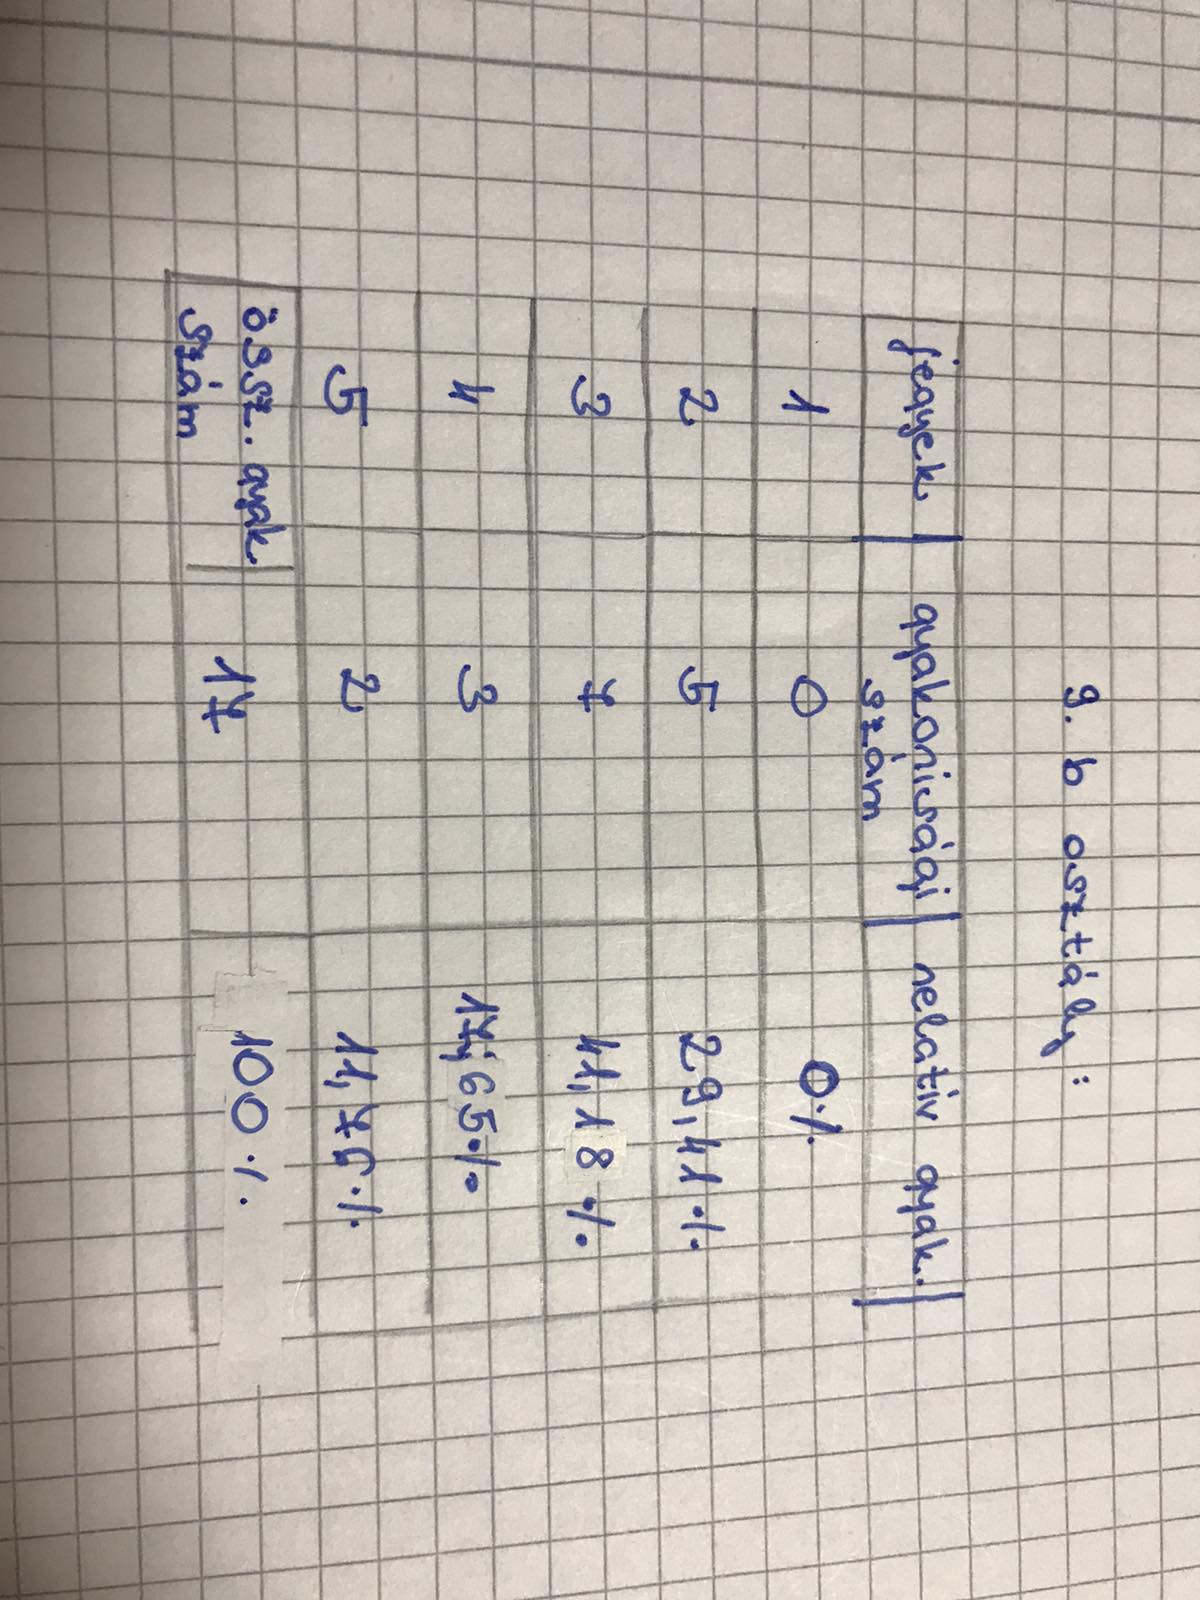 9. b osztály:
jegyek | gyakorisági szám | relatív gyak. |
1 0 0%
2 5 29,41%
3 7 41,18%
4 3 17,65%
5 2 11,76%
össz. gyak. szám | 17 100%